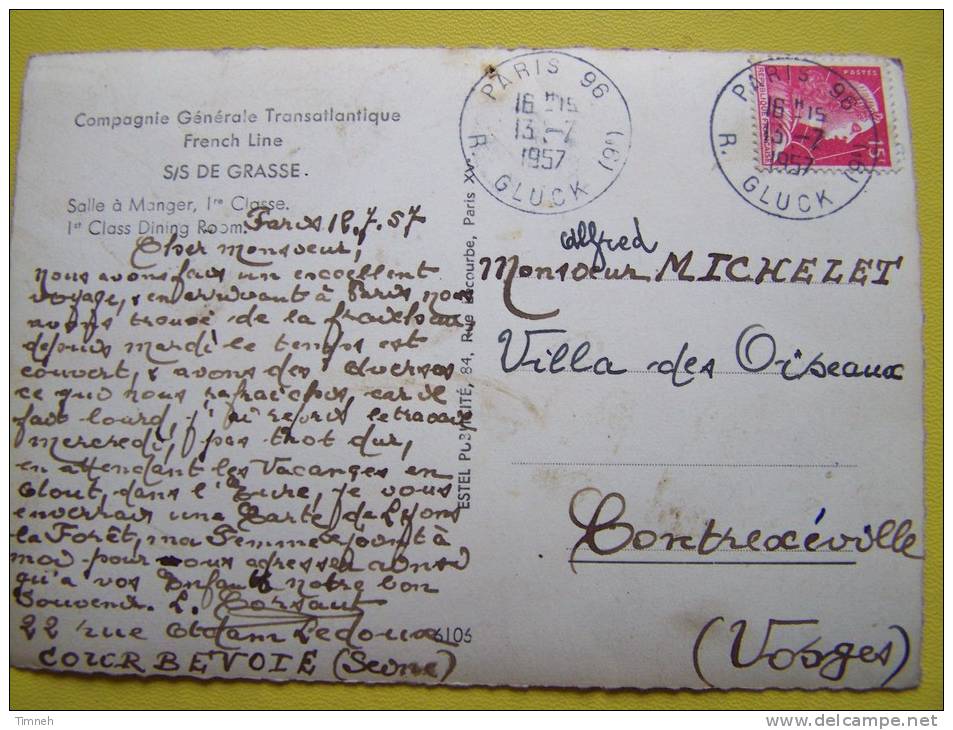 Compagnie Générale Transatlantique
French Line
S/S DE GRASSE.
Salle à Manger, 1re Classe.
1st Class Dining Room.
Paris 18.7.57
Cher monsieur,
nous avons fais un excellent
voyage, & en arrivant à Paris nous
avons trouvé de la fraicheur
depuis mardi le temps est
couvert, & avons des averses
ce qui nous rafraichis, car il
fait lourd, j'ai repris le travail
mercredi, pas trot dur,
en attendant les Vacances en
Aout, dans l'Eure, je vous
enverrais une Carte de Lyons
la Forêt, ma Femme se joint à
moi pour vous adresser ainsi
qu'a vos Enfants notre bon
Souvenir. L.
22 rue Adam Ledoux
COURBEVOIE (Seine)
ESTEL PUBLICITÉ, 84, Rue Lecourbe, Paris XV.
6106
PARIS 96
16H15
13-7
1957
R. GLUCK (9e)
PARIS 96
16H15
13-7
1957
R. GLUCK (9e)
REPUBLIQUE FRANÇAISE
POSTES
15F
Alfred
Monsieur MICHELET
Villa des Oiseaux
Contrexéville
(Vosges)
Timneh
www.delcampe.net